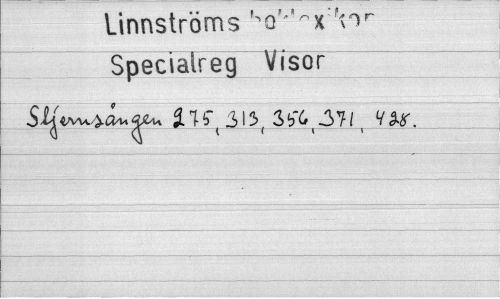 Linnströms boklexikon
Specialreg Visor
Stjernsången 275, 313, 356, 371, 428.